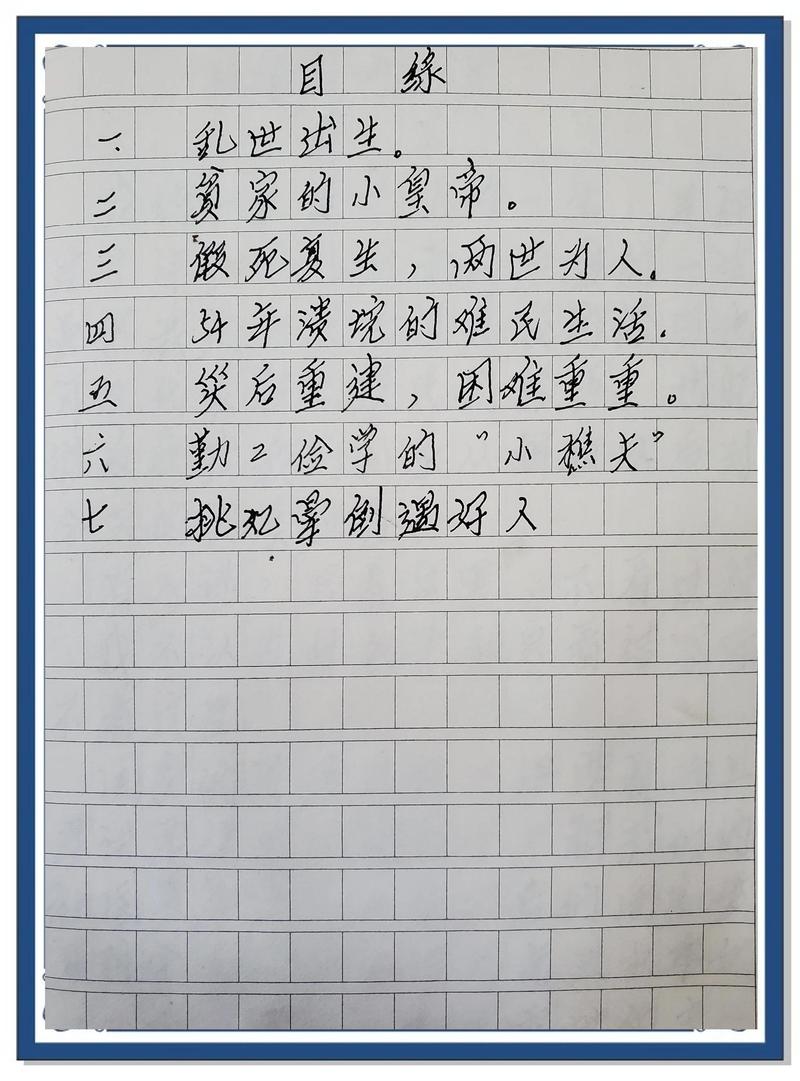 目 錄
一、 乱世出生。
二 貧家的小皇帝。
三 假死复生，两世为人。
四 54年溃垸的难民生活.
五 災后重建，困难重重。
六 勤工俭学的“小樵夫”
七 挑担晕倒遇好人